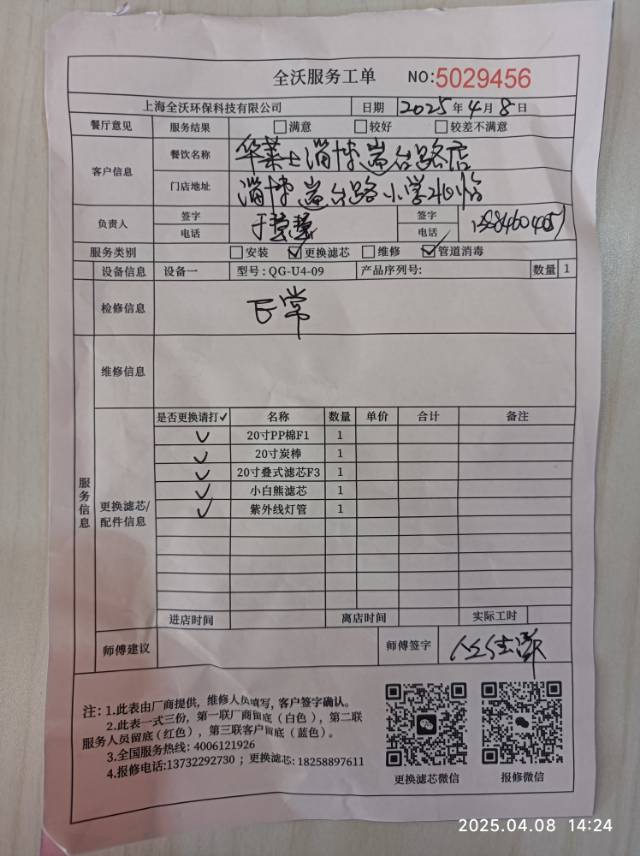 全沃服务工单 NO:5029456
上海全沃环保科技有限公司 日期 2025年4月8日
餐厅意见 服务结果 满意 较好 较差不满意
客户信息 餐饮名称 华莱士淄博嵩台路店
门店地址 淄博嵩台路小学
负责人 签字 签字
电话 于慧慧 电话
服务类别 安装 ✓更换滤芯 维修 ✓管道消毒
设备信息 设备一 型号:QG-U4-09 产品序列号: 数量 1
检修信息 正常
维修信息
服务信息
是否更换请打✓ 名称 数量 单价 合计 备注
✓ 20寸PP棉F1 1
✓ 20寸炭棒 1
✓ 20寸叠式滤芯F3 1
更换滤芯/配件信息
✓ 小白熊滤芯 1
✓ 紫外线灯管 1
进店时间 离店时间 实际工时
师傅建议 师傅签字
注:1.此表由厂商提供,维修人员填写,客户签字确认。
2.此表一式三份,第一联厂商留底(白色),第二联
服务人员留底(红色),第三联客户留底(蓝色)。
3.全国服务热线:4006121926
4.报修电话:13732292730;更换滤芯:18258897611
更换滤芯微信 报修微信
2025.04.08 14:24